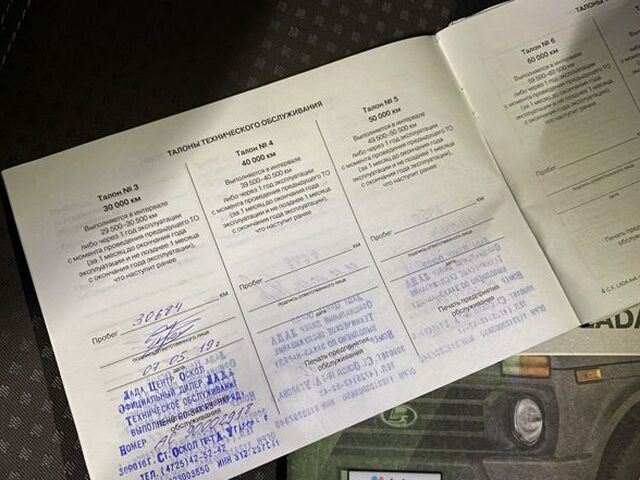 ТАЛОНЫ ТЕХНИЧЕСКОГО ОБСЛУЖИВАНИЯ
Талон № 3
30 000 км
Выполняется в интервале
29 500–30 500 км
либо через 1 год эксплуатации
с момента проведения предыдущего ТО
(за 1 месяц до окончания года
эксплуатации и не позднее 1 месяца
с окончания года эксплуатации),
что наступит ранее
Пробег 30674 км
подпись ответственного лица
07 05 19г
дата
ЛАДА ЦЕНТР ОСКОЛ
ОФИЦИАЛЬНЫЙ ДИЛЕР ЛАДА
ТЕХНИЧЕСКОЕ ОБСЛУЖИВАНИЕ
ВЫПОЛНЕНО ПО ЗАКАЗ-НАРЯДУ
обслуживания
НОМЕР
309016 Г. СТ. ОСКОЛ ПР-Т А. УГАРОВА
ТЕЛ. (4725) 42-52-42
ИНН
Талон № 4
40 000 км
Выполняется в интервале
39 500–40 500 км
либо через 1 год эксплуатации
с момента проведения предыдущего ТО
(за 1 месяц до окончания года
эксплуатации и не позднее 1 месяца
с окончания года эксплуатации),
что наступит ранее
Пробег км
подпись ответственного лица
дата
Печать предприятия
обслуживания
Талон № 5
50 000 км
Выполняется в интервале
49 500–50 500 км
либо через 1 год эксплуатации
с момента проведения предыдущего ТО
(за 1 месяц до окончания года
эксплуатации и не позднее 1 месяца
с окончания года эксплуатации),
что наступит ранее
Пробег км
подпись ответственного лица
дата
Печать предприятия
обслуживания
ТАЛОНЫ
Талон № 6
60 000 км
Выполняется в интервале
59 500–60 500 км
либо через 1 год эксплуатации
с момента проведения предыдущего
(за 1 месяц до окончания года
эксплуатации и не позднее 1
с окончания года эксплуатации
что наступит ранее
Пробег
подпись ответственного
дата
Печать предприятия
обслуживания
LADA